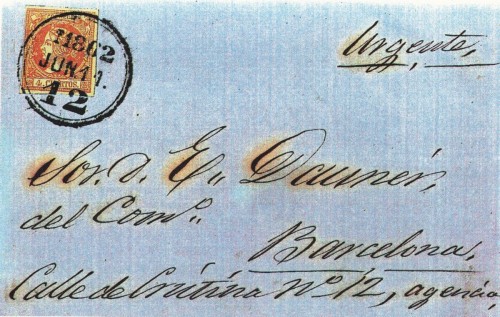 11862
JUN 11.
12
4 CUARTOS.
Urgente,
Sor. d. E. Dauner,
del Como.
Barcelona,
Calle de Cristina Nº 12, agencia,